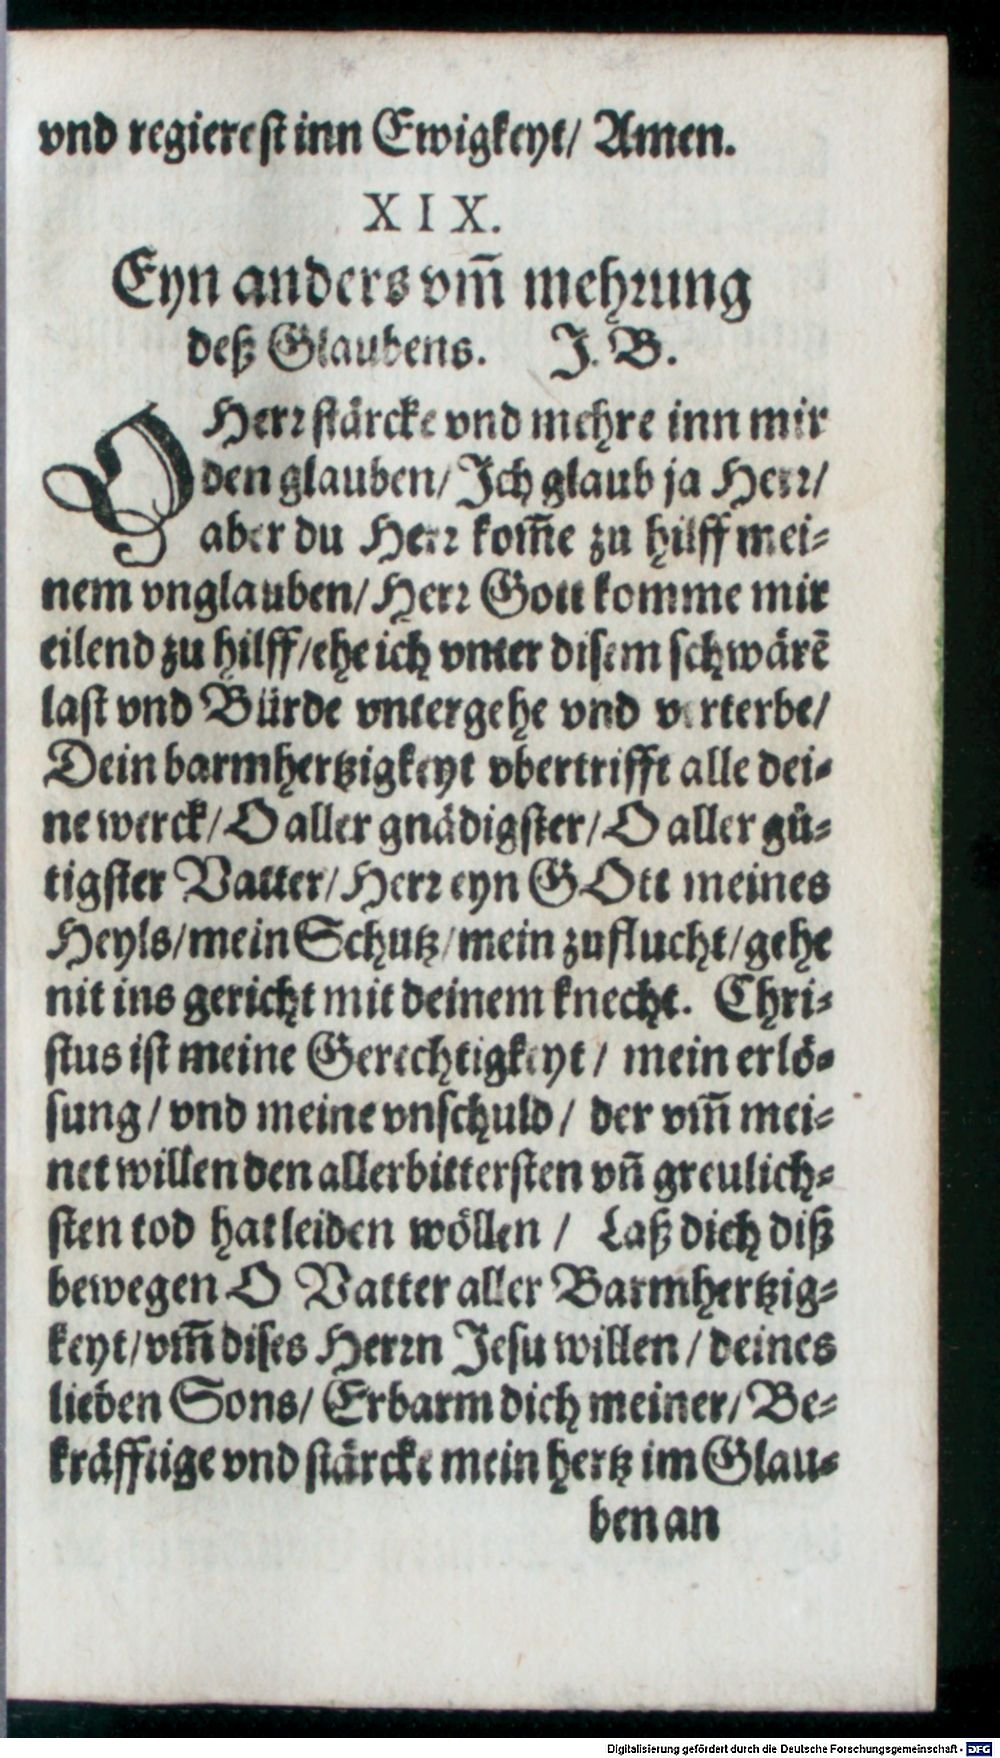 vnd regierest inn Ewigkeyt/ Amen.
XIX.
Eyn anders vm̃ mehrung
deß Glaubens. J. B.
O Herr stärcke vnd mehre inn mir
den glauben/ Ich glaub ja Herr/
aber du Herr kom̃e zu hilff mei-
nem vnglauben/ Herr Gott komme mir
eilend zu hilff/ ehe ich vnter disem schwärẽ
last vnd Bürde vntergehe vnd verterbe/
Dein barmhertzigkeyt vbertrifft alle dei-
ne werck/ O aller gnädigster/ O aller gü-
tigster Vatter/ Herr eyn GOtt meines
Heyls/ mein Schutz/ mein zuflucht/ gehe
nit ins gericht mit deinem knecht. Chri-
stus ist meine Gerechtigkeyt/ mein erlö-
sung/ vnd meine vnschuld/ der vm̃ mei-
net willen den allerbittersten vñ greulich-
sten tod hat leiden wöllen/ Laß dich diß
bewegen O Vatter aller Barmhertzig-
keyt/ vm̃ dises Herrn Jesu willen/ deines
lieben Sons/ Erbarm dich meiner/ Be-
kräfftige vnd stärcke mein hertz im Glau-
ben an
Digitalisierung gefördert durch die Deutsche Forschungsgemeinschaft - DFG